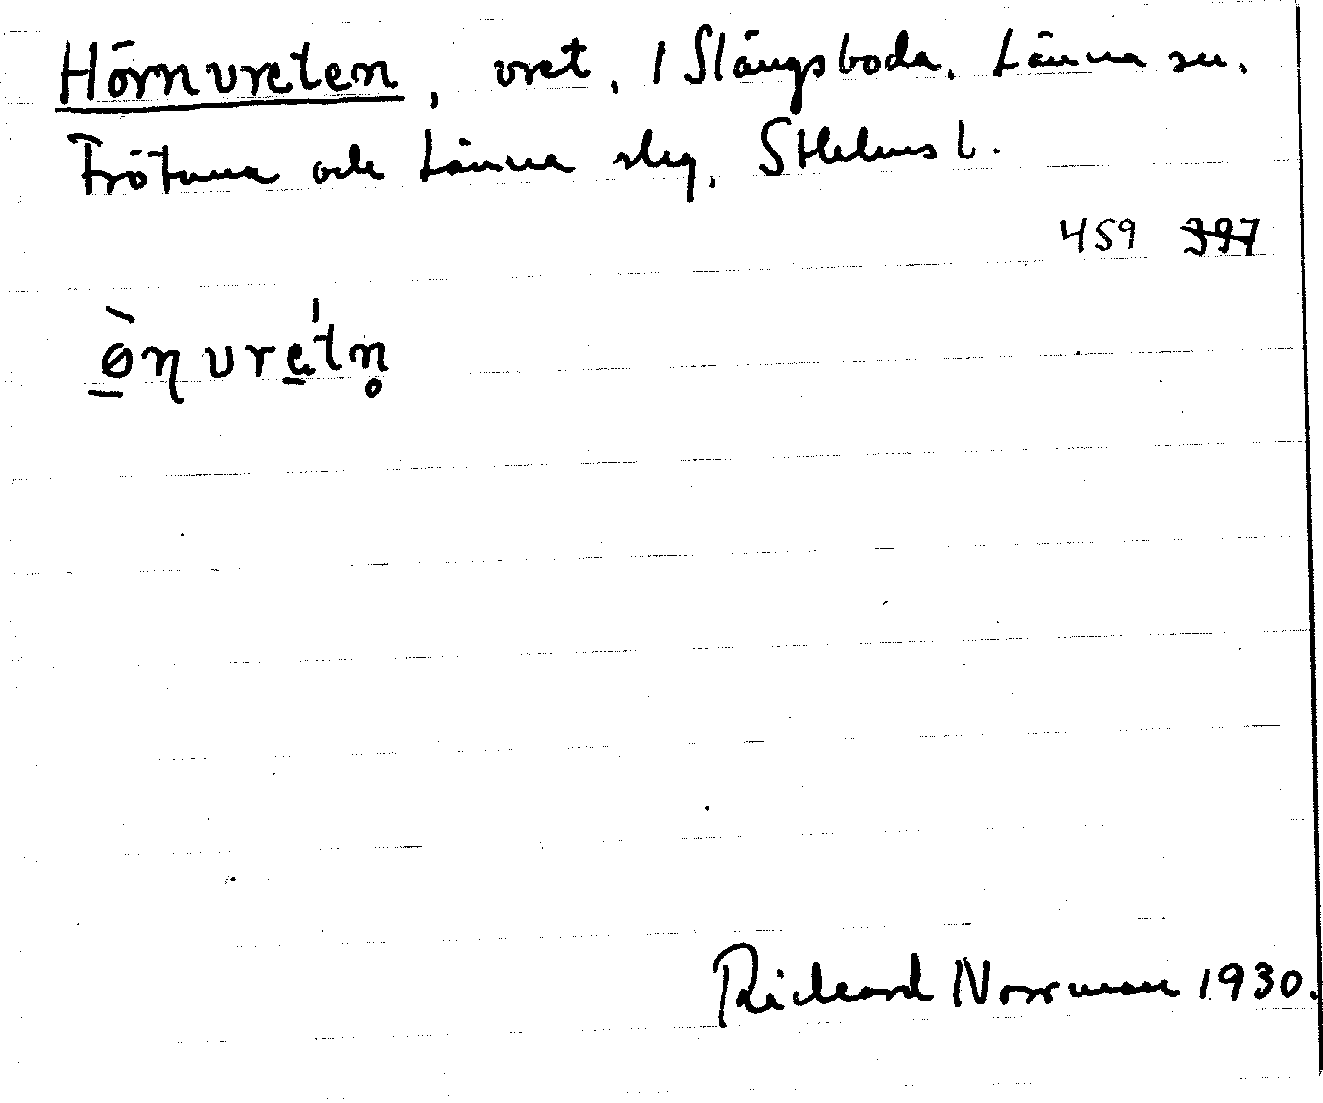 Hörnvreten, vret, 1 Slängsboda, Länna sn.
Frötuna och Länna slg, Sthlms l.
459 397
ø̠̀ɳvre̠̍tn̥
Rickard Norrman 1930.